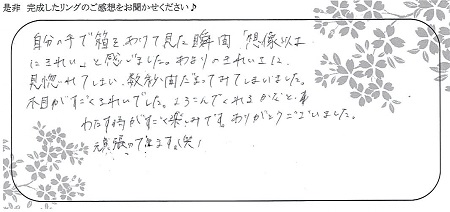 是非 完成したリングのご感想をお聞かせください♪
自分の手で箱をあけて見た瞬間「想像以上
にきれい」と感じました。あまりのきれいさに、
見惚れてしまい、数秒間だまってみてしまいました。
木目がすごくきれいでした。よろこんでくれるかなと
わたす時がすごく楽しみです。ありがとうございました。
頑張ってきます(笑)